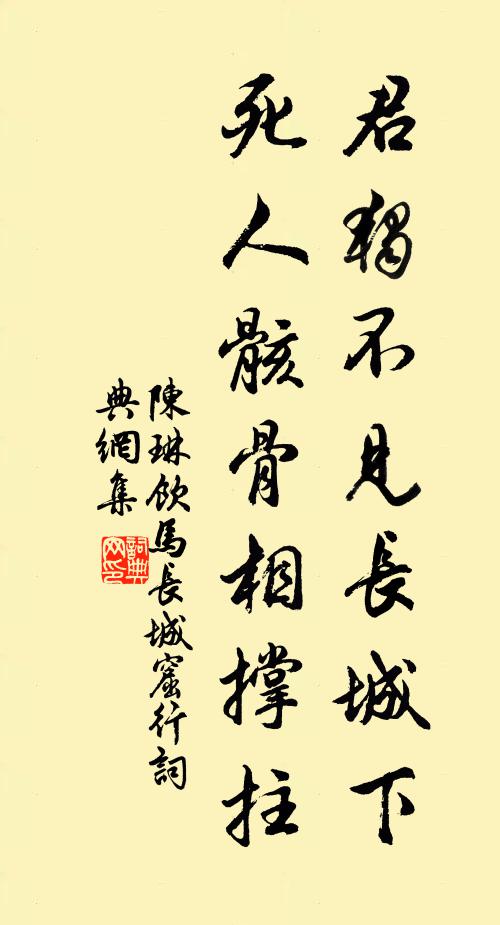 君獨不見長城下
死人骸骨相撐拄
陳琳飲馬長城窟行詞
典網集
詞典
网印